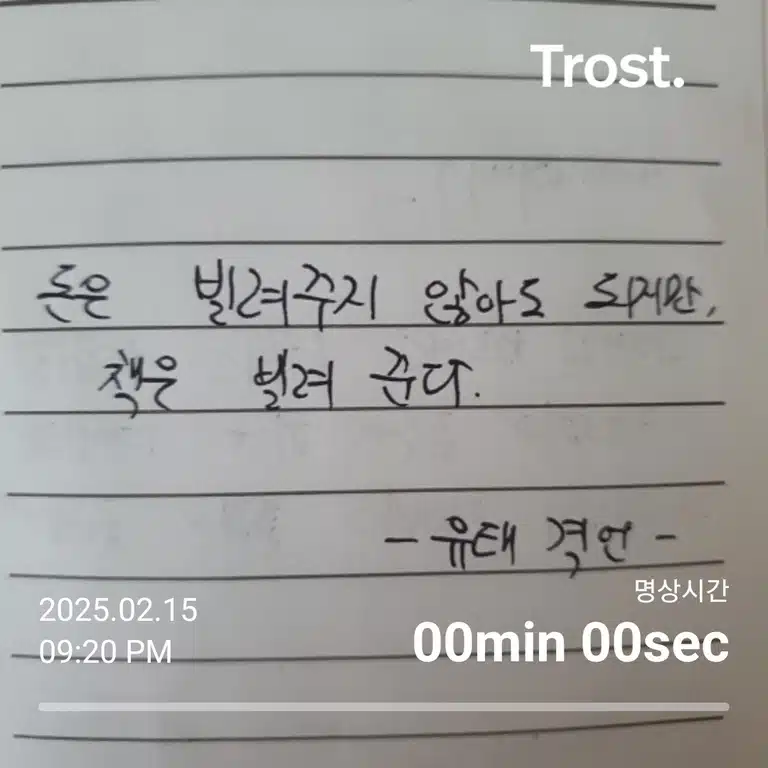 Trost.
돈은 빌려주지 않아도 되지만,
책은 빌려 준다.
- 유태 격언 -
2025.02.15
09:20 PM
명상시간
00min 00sec